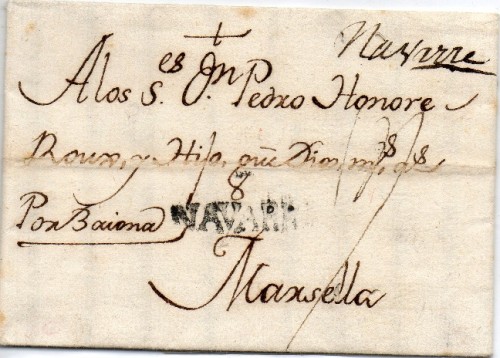 Navirre
A los S.es Dn Pedro Honore
Roux, y Hijo, que Dios ms. as
8
Por Baiona NAVARR
Marsella